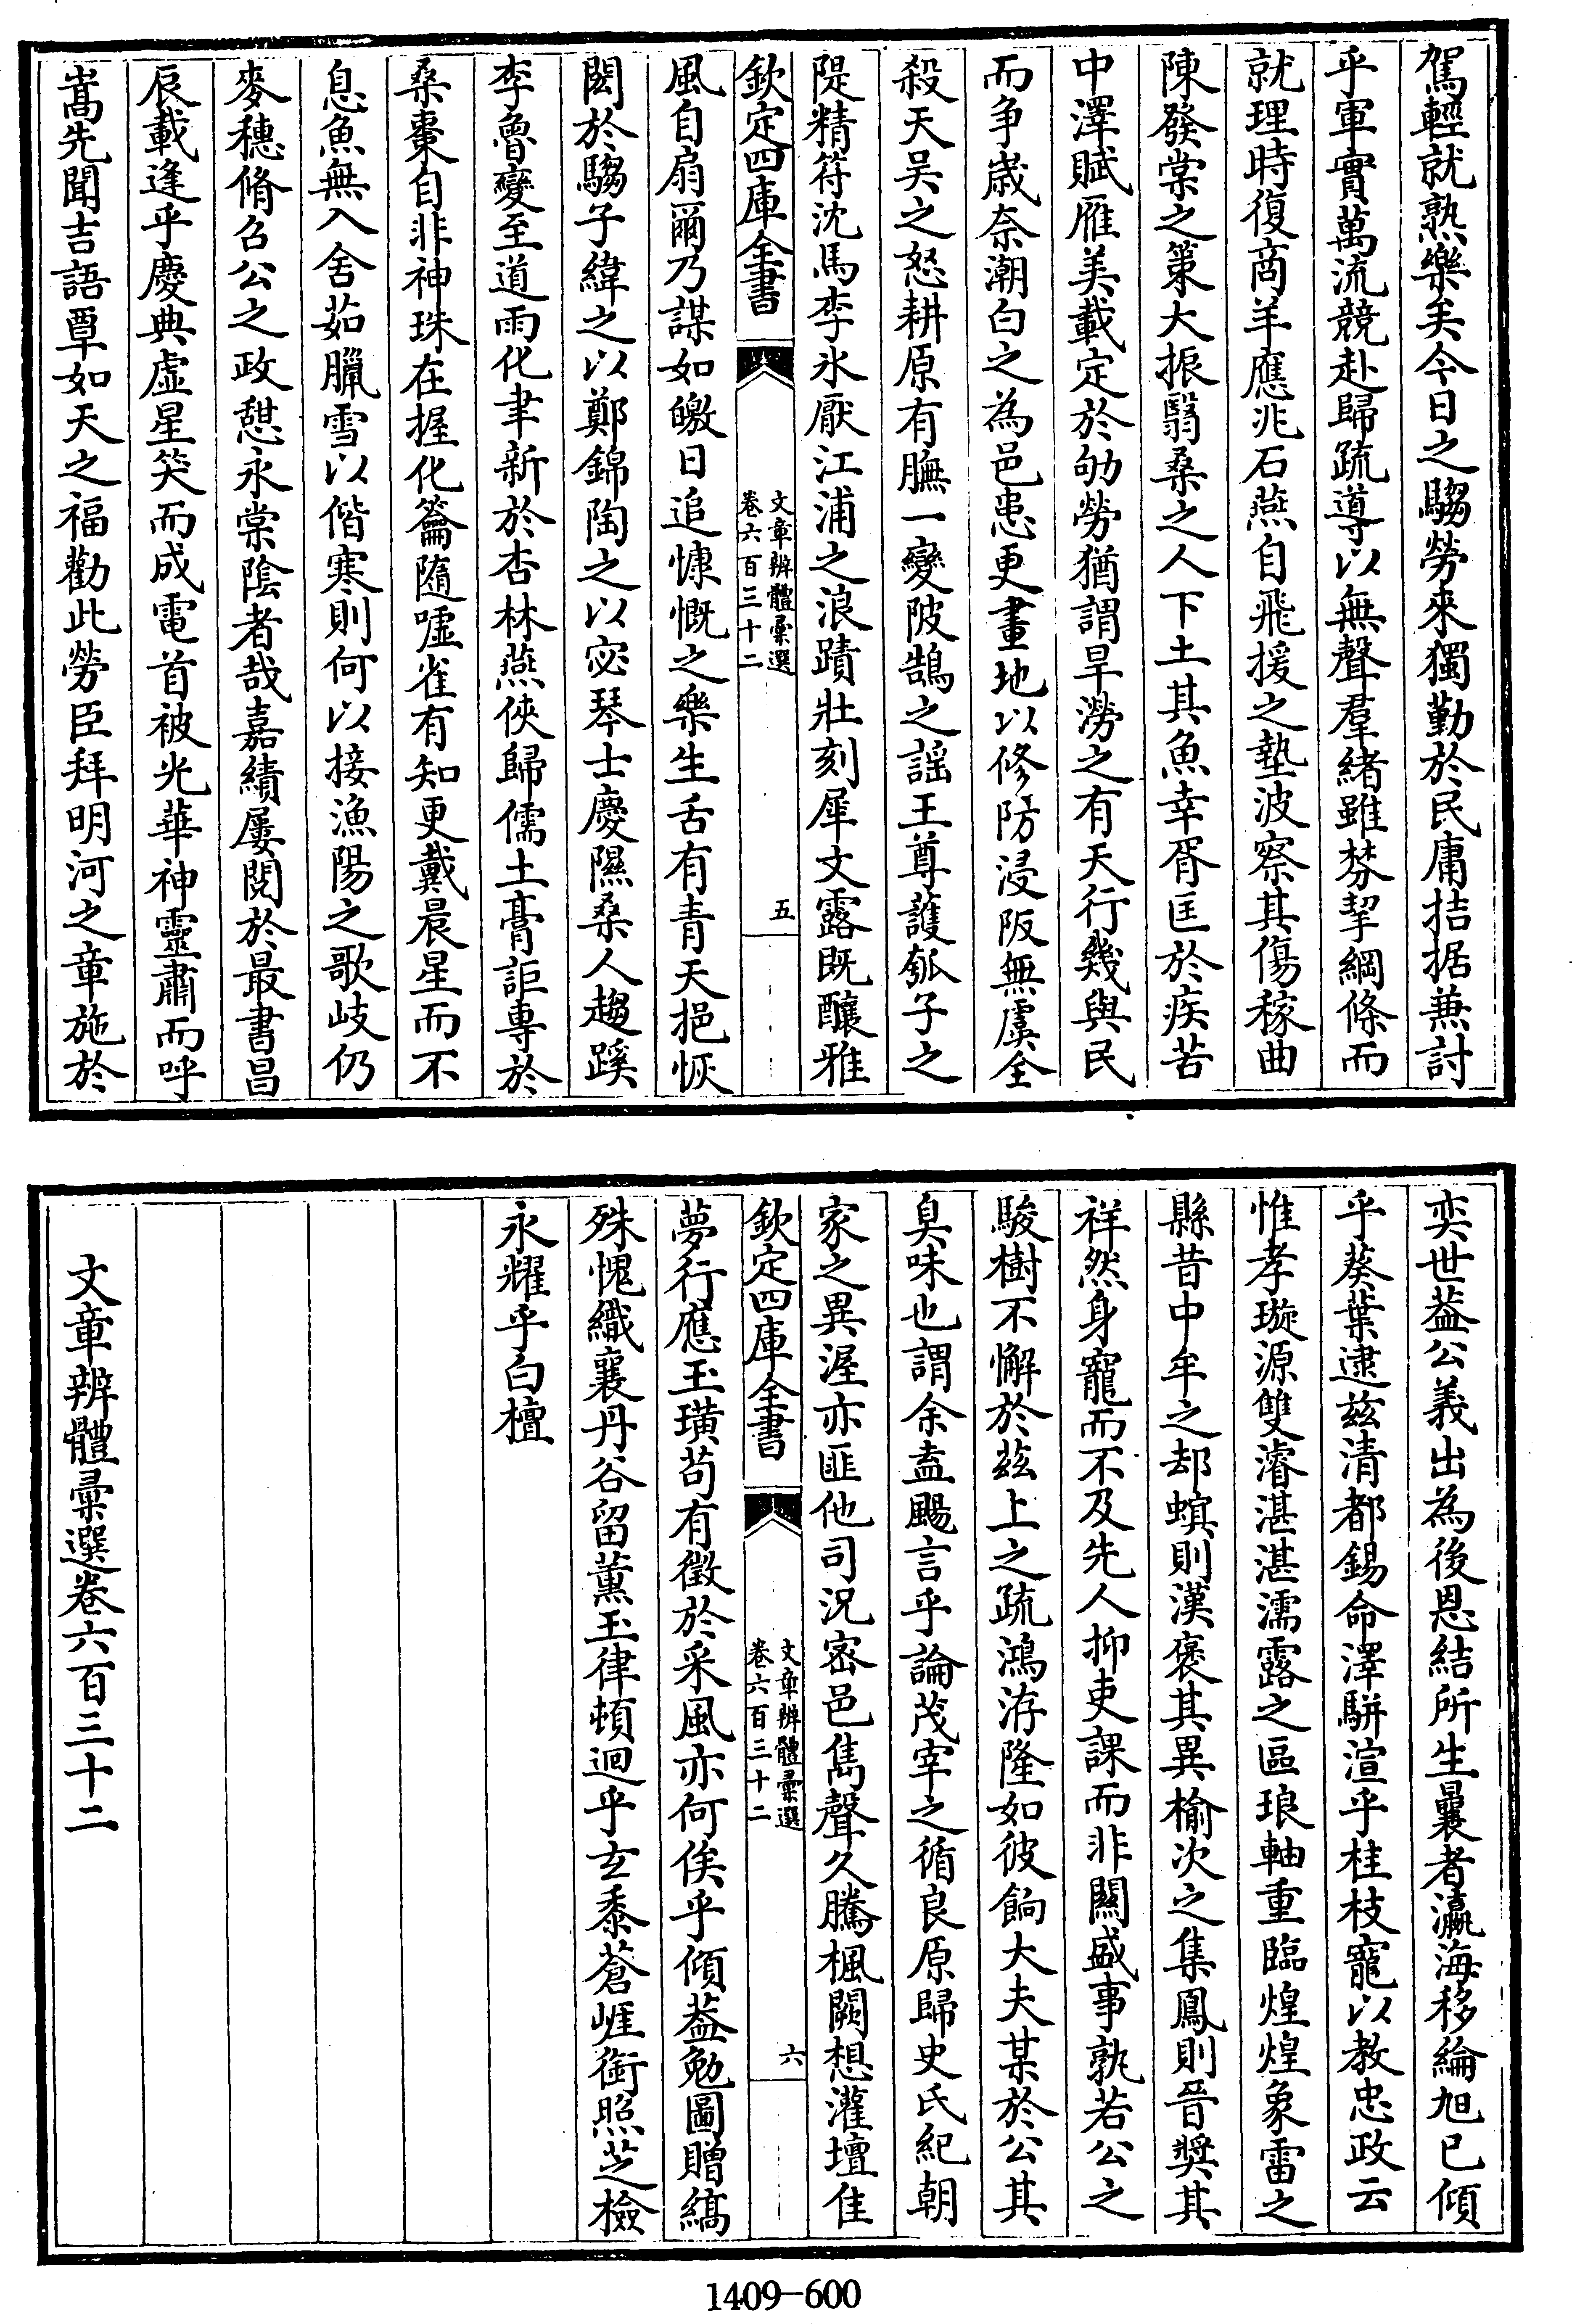 駕輕就熟樂矣今日之騶勞來獨勤於民庸拮据兼討
乎軍實萬流競赴歸疏導以無聲羣緒雖棼挈綱條而
就理時復商羊應兆石燕自飛援之墊波察其傷稼曲
陳發棠之策大振翳桑之人下土其魚幸胥匡於疾苦
中澤賦雁美載定於劬勞猶謂旱澇之有天行幾與民
而争歲奈潮白之為邑患更畫地以修防浸阪無虞全
殺天吴之怒耕原有膴一變陂鵠之謡王尊護瓠子之
隄精符沈馬李氷厭江浦之浪蹟壯刻犀文露既釀雅
欽定四庫全書
文章辨體彚選
卷六百三十二
五
風自扇爾乃謀如皦日追慷慨之樂生舌有青天挹恢
閎於騶子緯之以鄭錦陶之以宓琴士慶隰桑人趨蹊
李魯變至道雨化聿新於杏林燕俠歸儒土膏詎專於
桑棗自非神珠在握化籥隨噓雀有知更戴晨星而不
息魚無入舍茹臘雪以偕寒則何以接漁陽之歌岐仍
麥穗脩召公之政憇永棠陰者哉嘉績屢閲於最書昌
辰載逢乎慶典虚星笑而成電首被光華神靈肅而呼
嵩先聞吉語覃如天之福勸此勞臣拜明河之章施於
奕世葢公義出為後恩結所生曩者瀛海移綸旭已傾
乎葵葉逮兹清都錫命澤駢渲乎桂枝寵以教忠政云
惟孝璇源雙濬湛湛濡露之區琅軸重臨煌煌象雷之
縣昔中牟之却螟則漢褒其異榆次之集鳳則晉奬其
祥然身寵而不及先人抑吏課而非關盛事孰若公之
駿樹不懈於兹上之疏鴻洊隆如彼餉大夫某於公其
臭味也謂余盍颺言乎論茂宰之循良原歸史氏紀朝
家之異渥亦匪他司況宻邑雋聲久騰楓闕想灌壇佳
欽定四庫全書
文章辨體彚選
卷六百三十二
六
夢行應玉璜苟有徵於采風亦何俟乎傾葢勉圖贈縞
殊愧織襄丹谷留薰玉律頓迴乎玄黍蒼崕銜照芝檢
永耀乎白檀
文章辨體彚選卷六百三十二
1409-600